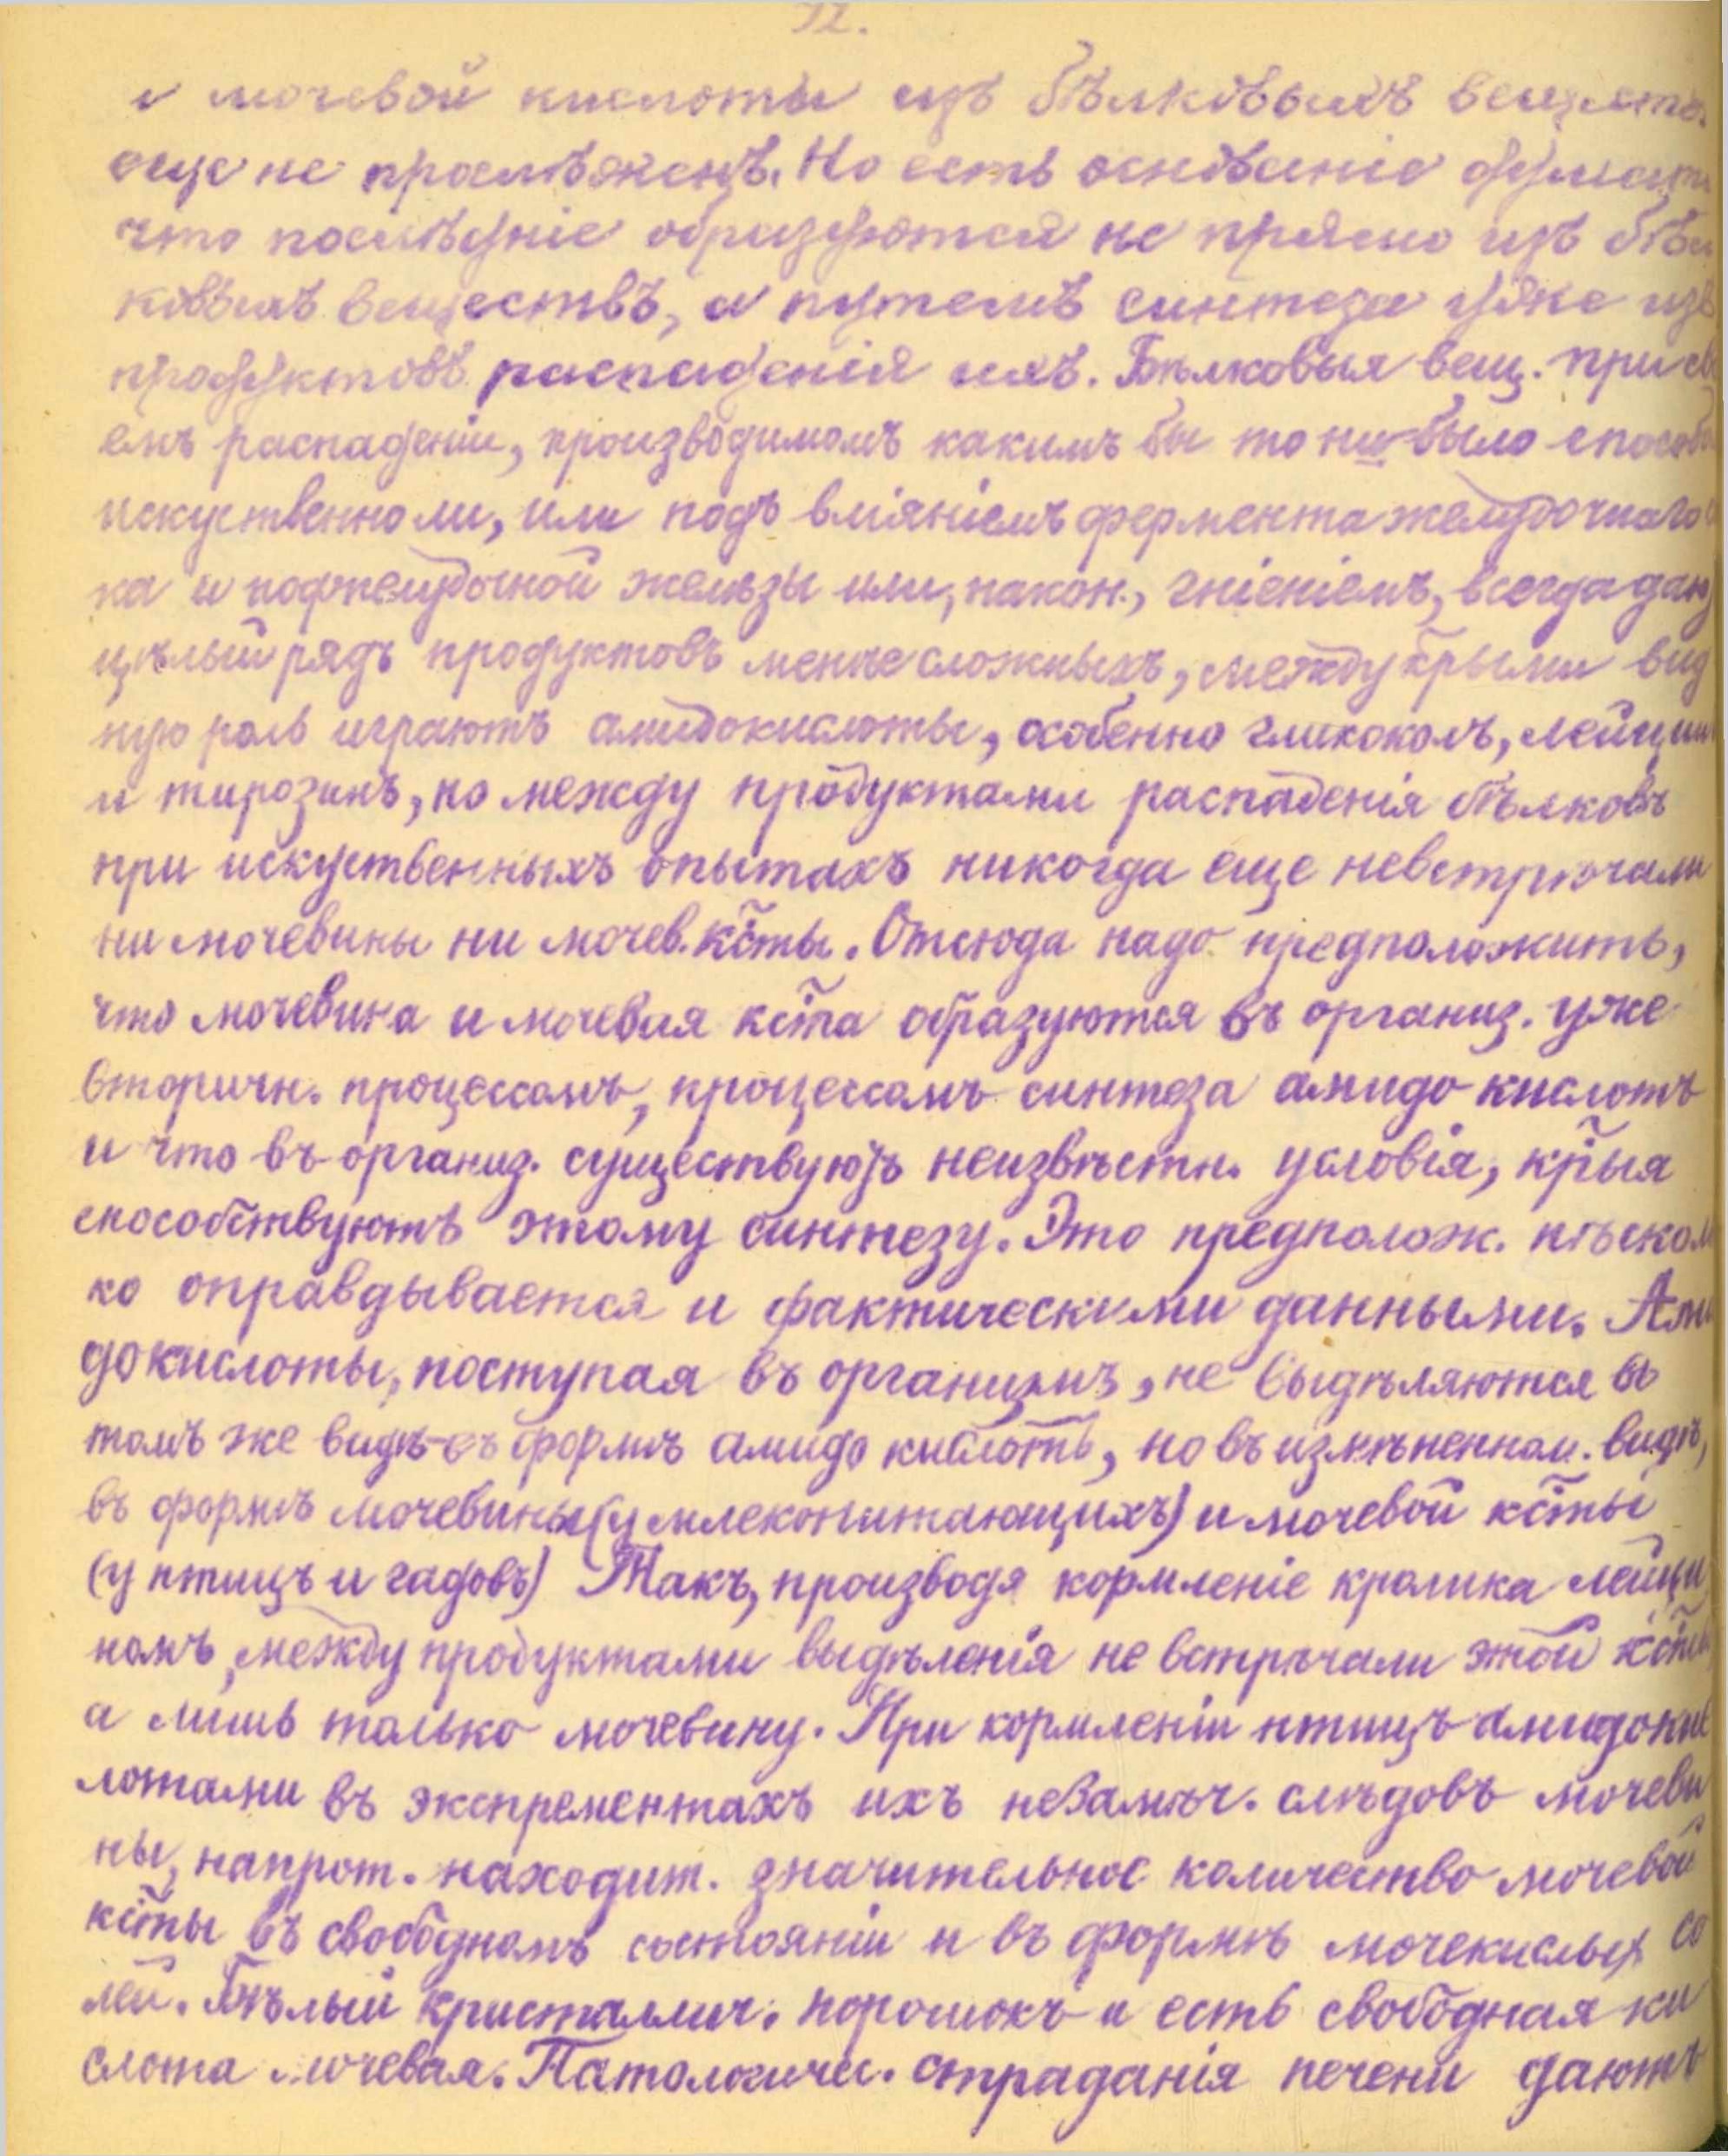 72.
и мочевой кислоты изъ бѣлковыхъ веществ.
еще не прослѣженъ. Но есть основаніе думать
что послѣдніе образуются не прямо изъ бѣл
ковыхъ веществъ, а путемъ синтеза уже изъ
продуктовъ распаденія ихъ. Бѣлковыя вещ. при сво
емъ распаденіи, производимомъ какимъ бы то ни было способо
искуственно ли, или подъ вліяніемъ фермента желудочнаго со
ка и поджелудочной железы или, након., гніеніемъ, всегда даю
цѣлый рядъ продуктовъ менѣе сложныхъ, между к̃рыми вид
ную роль играютъ амидокислоты, особенно гликоколъ, лейцин
и тирозинъ, но между продуктами распаденія бѣлковъ
при искуственныхъ опытахъ никогда еще невстрѣчали
ни мочевины ни мочев. к̃сты. Отсюда надо предположить,
что мочевина и мочевая к̃ста образуются въ организ. уже
вторичн. процессомъ, процессомъ синтеза амидо кислотъ
и что въ организ. существуютъ неизвѣстн. условія, к̃рыя
способствуютъ этому синтезу. Это предполож. нѣсколь
ко оправдывается и фактическими данными. Ами
докислоты, поступая въ организмъ, не выдѣляются въ
томъ же видѣ въ формѣ амидо кислотъ, но въ измѣненном. видѣ,
въ формѣ мочевины (у млекопитающихъ) и мочевой к̃сты
(у птицъ и гадовъ) Такъ, производя кормленіе кролика лейци
номъ, между продуктами выдѣленія не встрѣчали этой к̃сты
а лишь только мочевину. При кормленіи птицъ амидокис
лотами въ экспрементахъ ихъ незамѣч. слѣдовъ мочеви
ны, напрот. находит. значительное количество мочевой
к̃сты въ свободномъ состояніи и въ формѣ мочекислых со
лей. Бѣлый кристаллич. порошокъ и есть свободная ки
слота мочевая. Патологичес. страданія печени даютъ